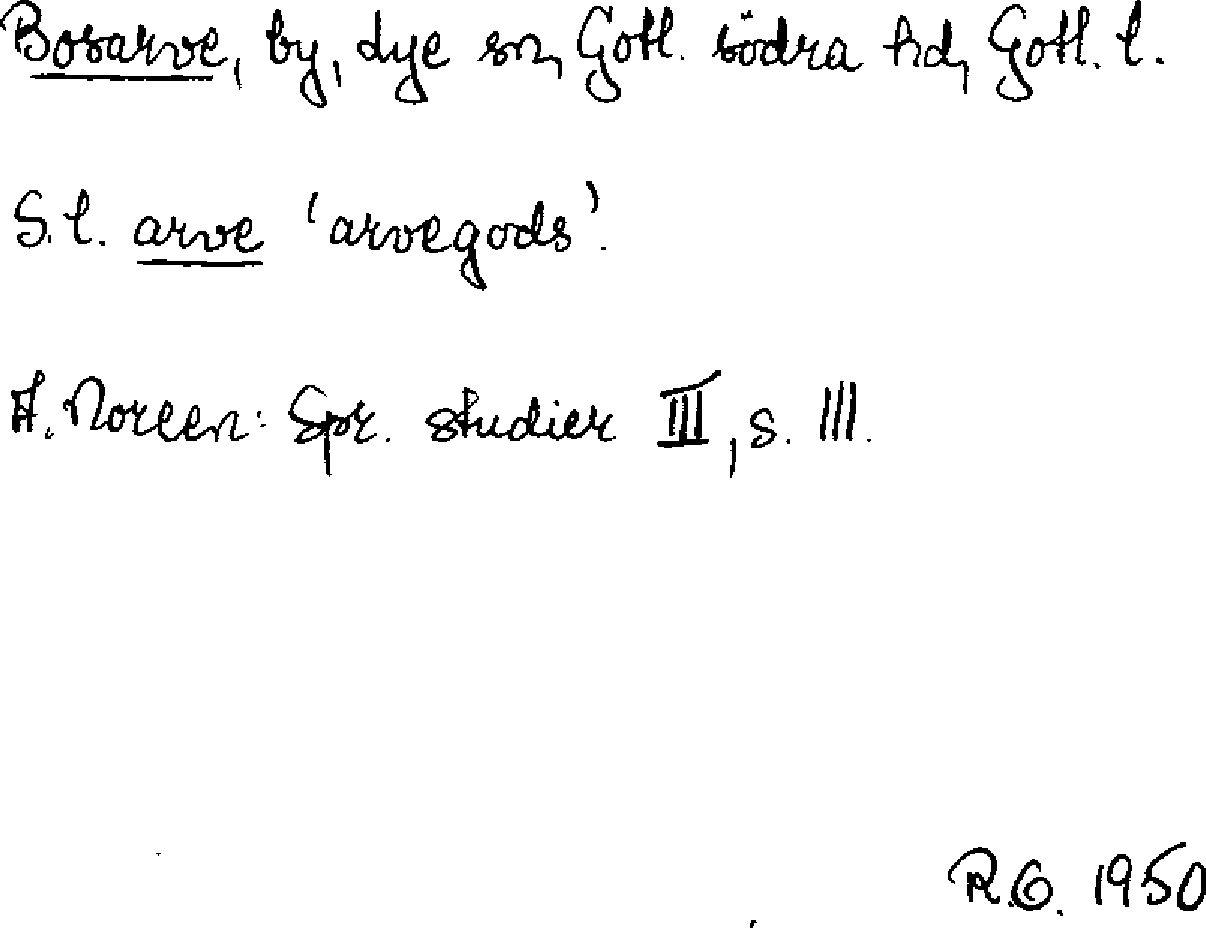 Bosarve, by, Lye sn, Gotl. södra hd, Gotl. l.
S.l. arve 'arvegods'.
A. Noreen: Spr. studier III, s. 111.
R.G. 1950